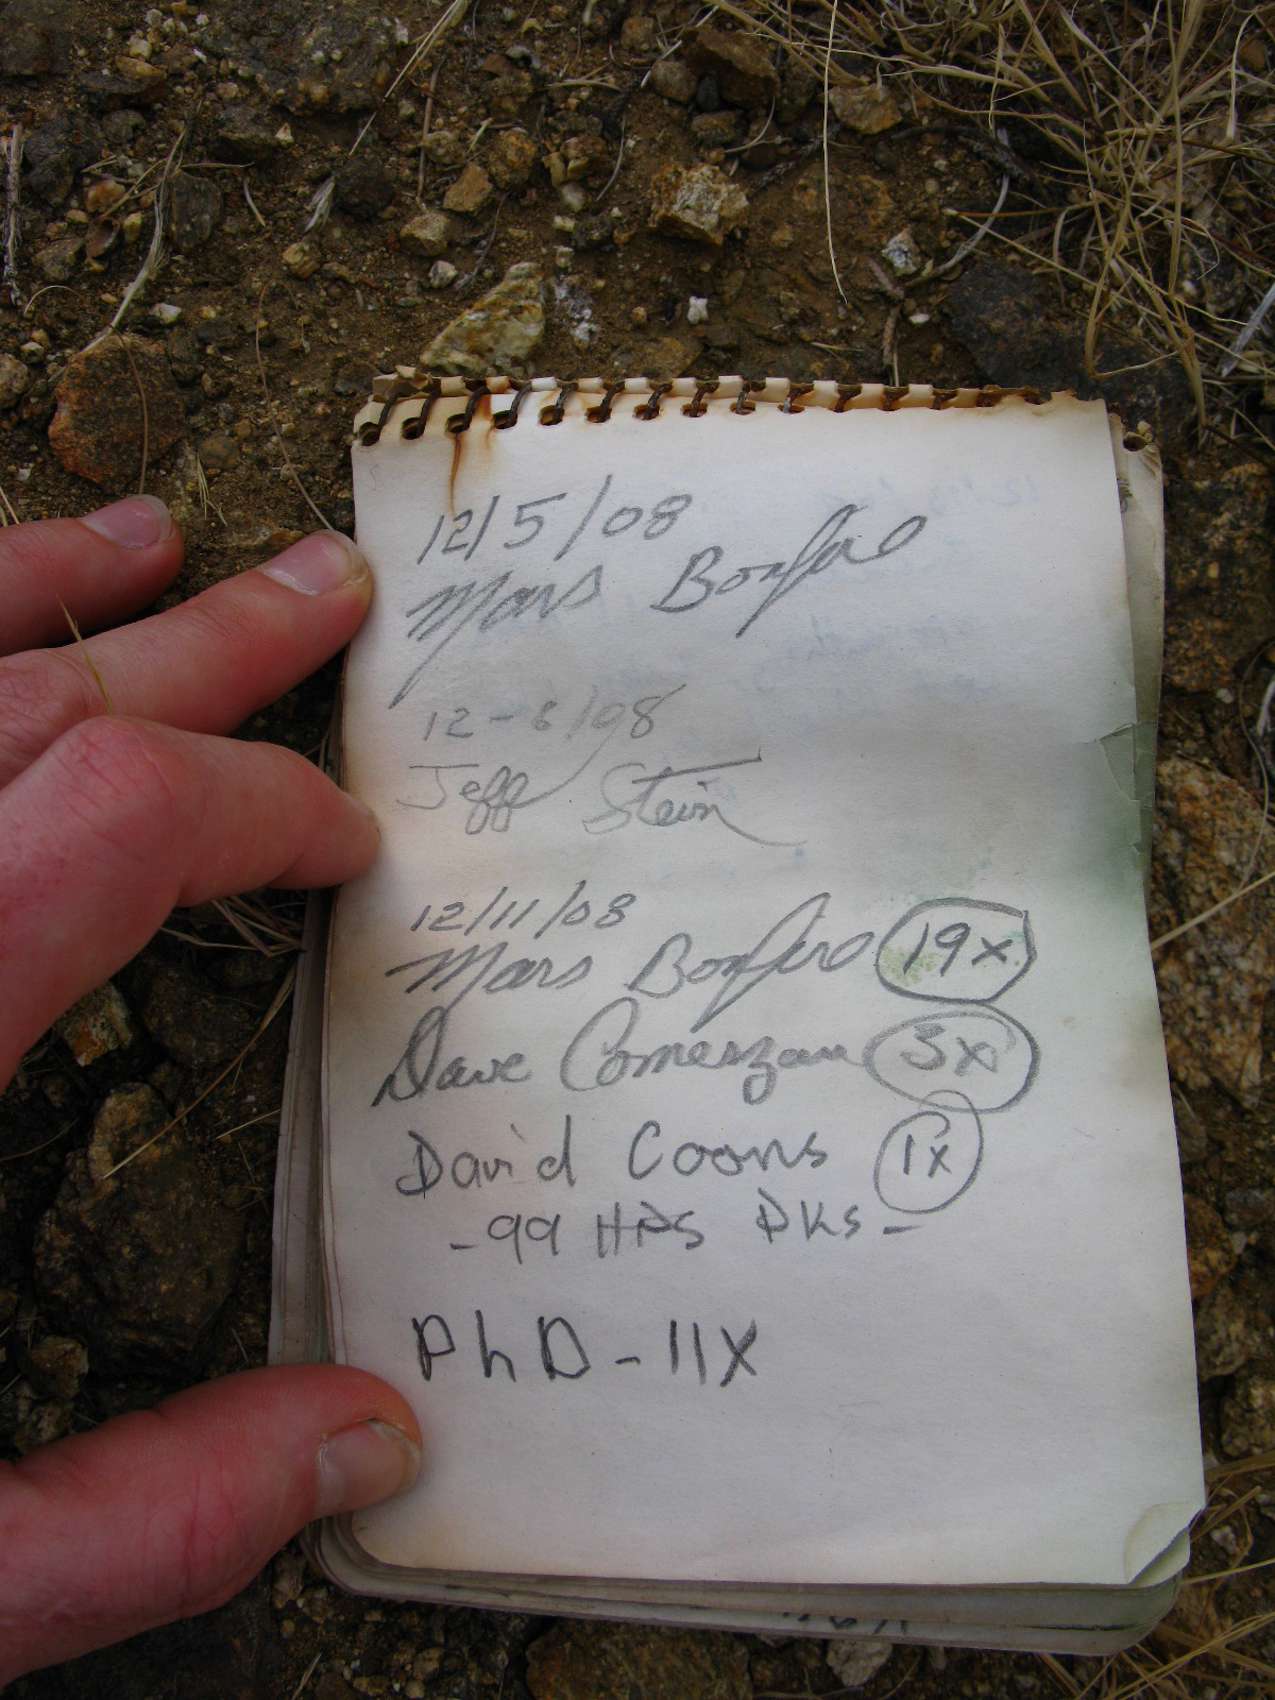 12/5/08
Mars Bonfire
12-6/98
Jeff Stein
12/11/08
Mars Bonfire 19x
Dave Comerzan 3x
David Coons 1x
-99 HPS PKs-
PhD-11X